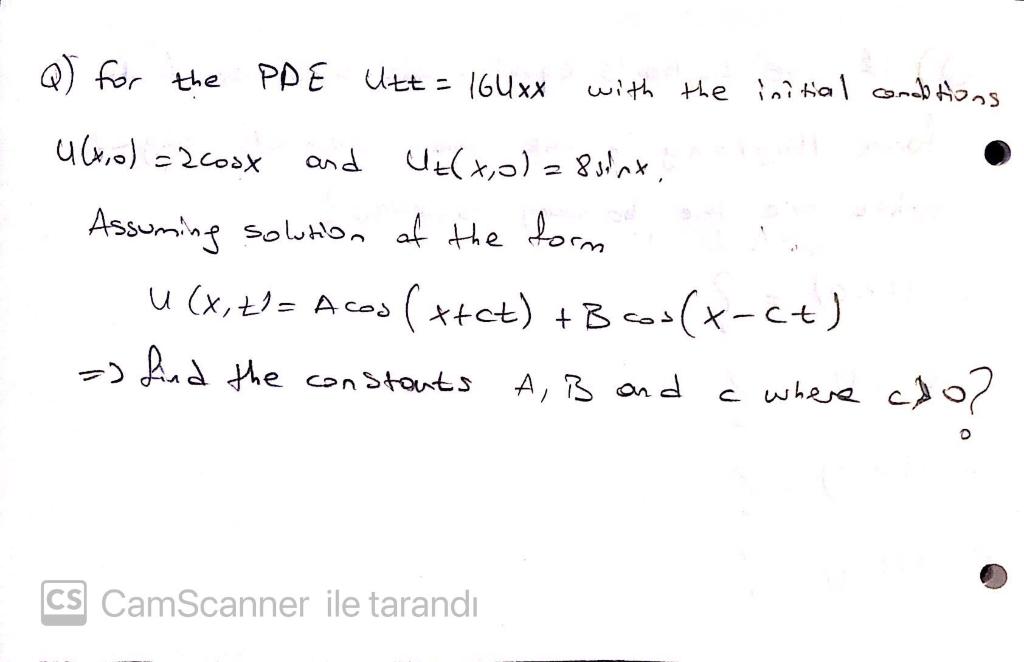 Q) for the PDE Utt = 16Uxx with the initial conditions
U(x,0) = 2cosx and Ut(x,0) = 8sinx,
Assuming solution of the form
u (x,t) = A cos (x+ct) + B cos(x-ct)
=> find the constants A, B and c where c>0?
CS CamScanner ile tarandı